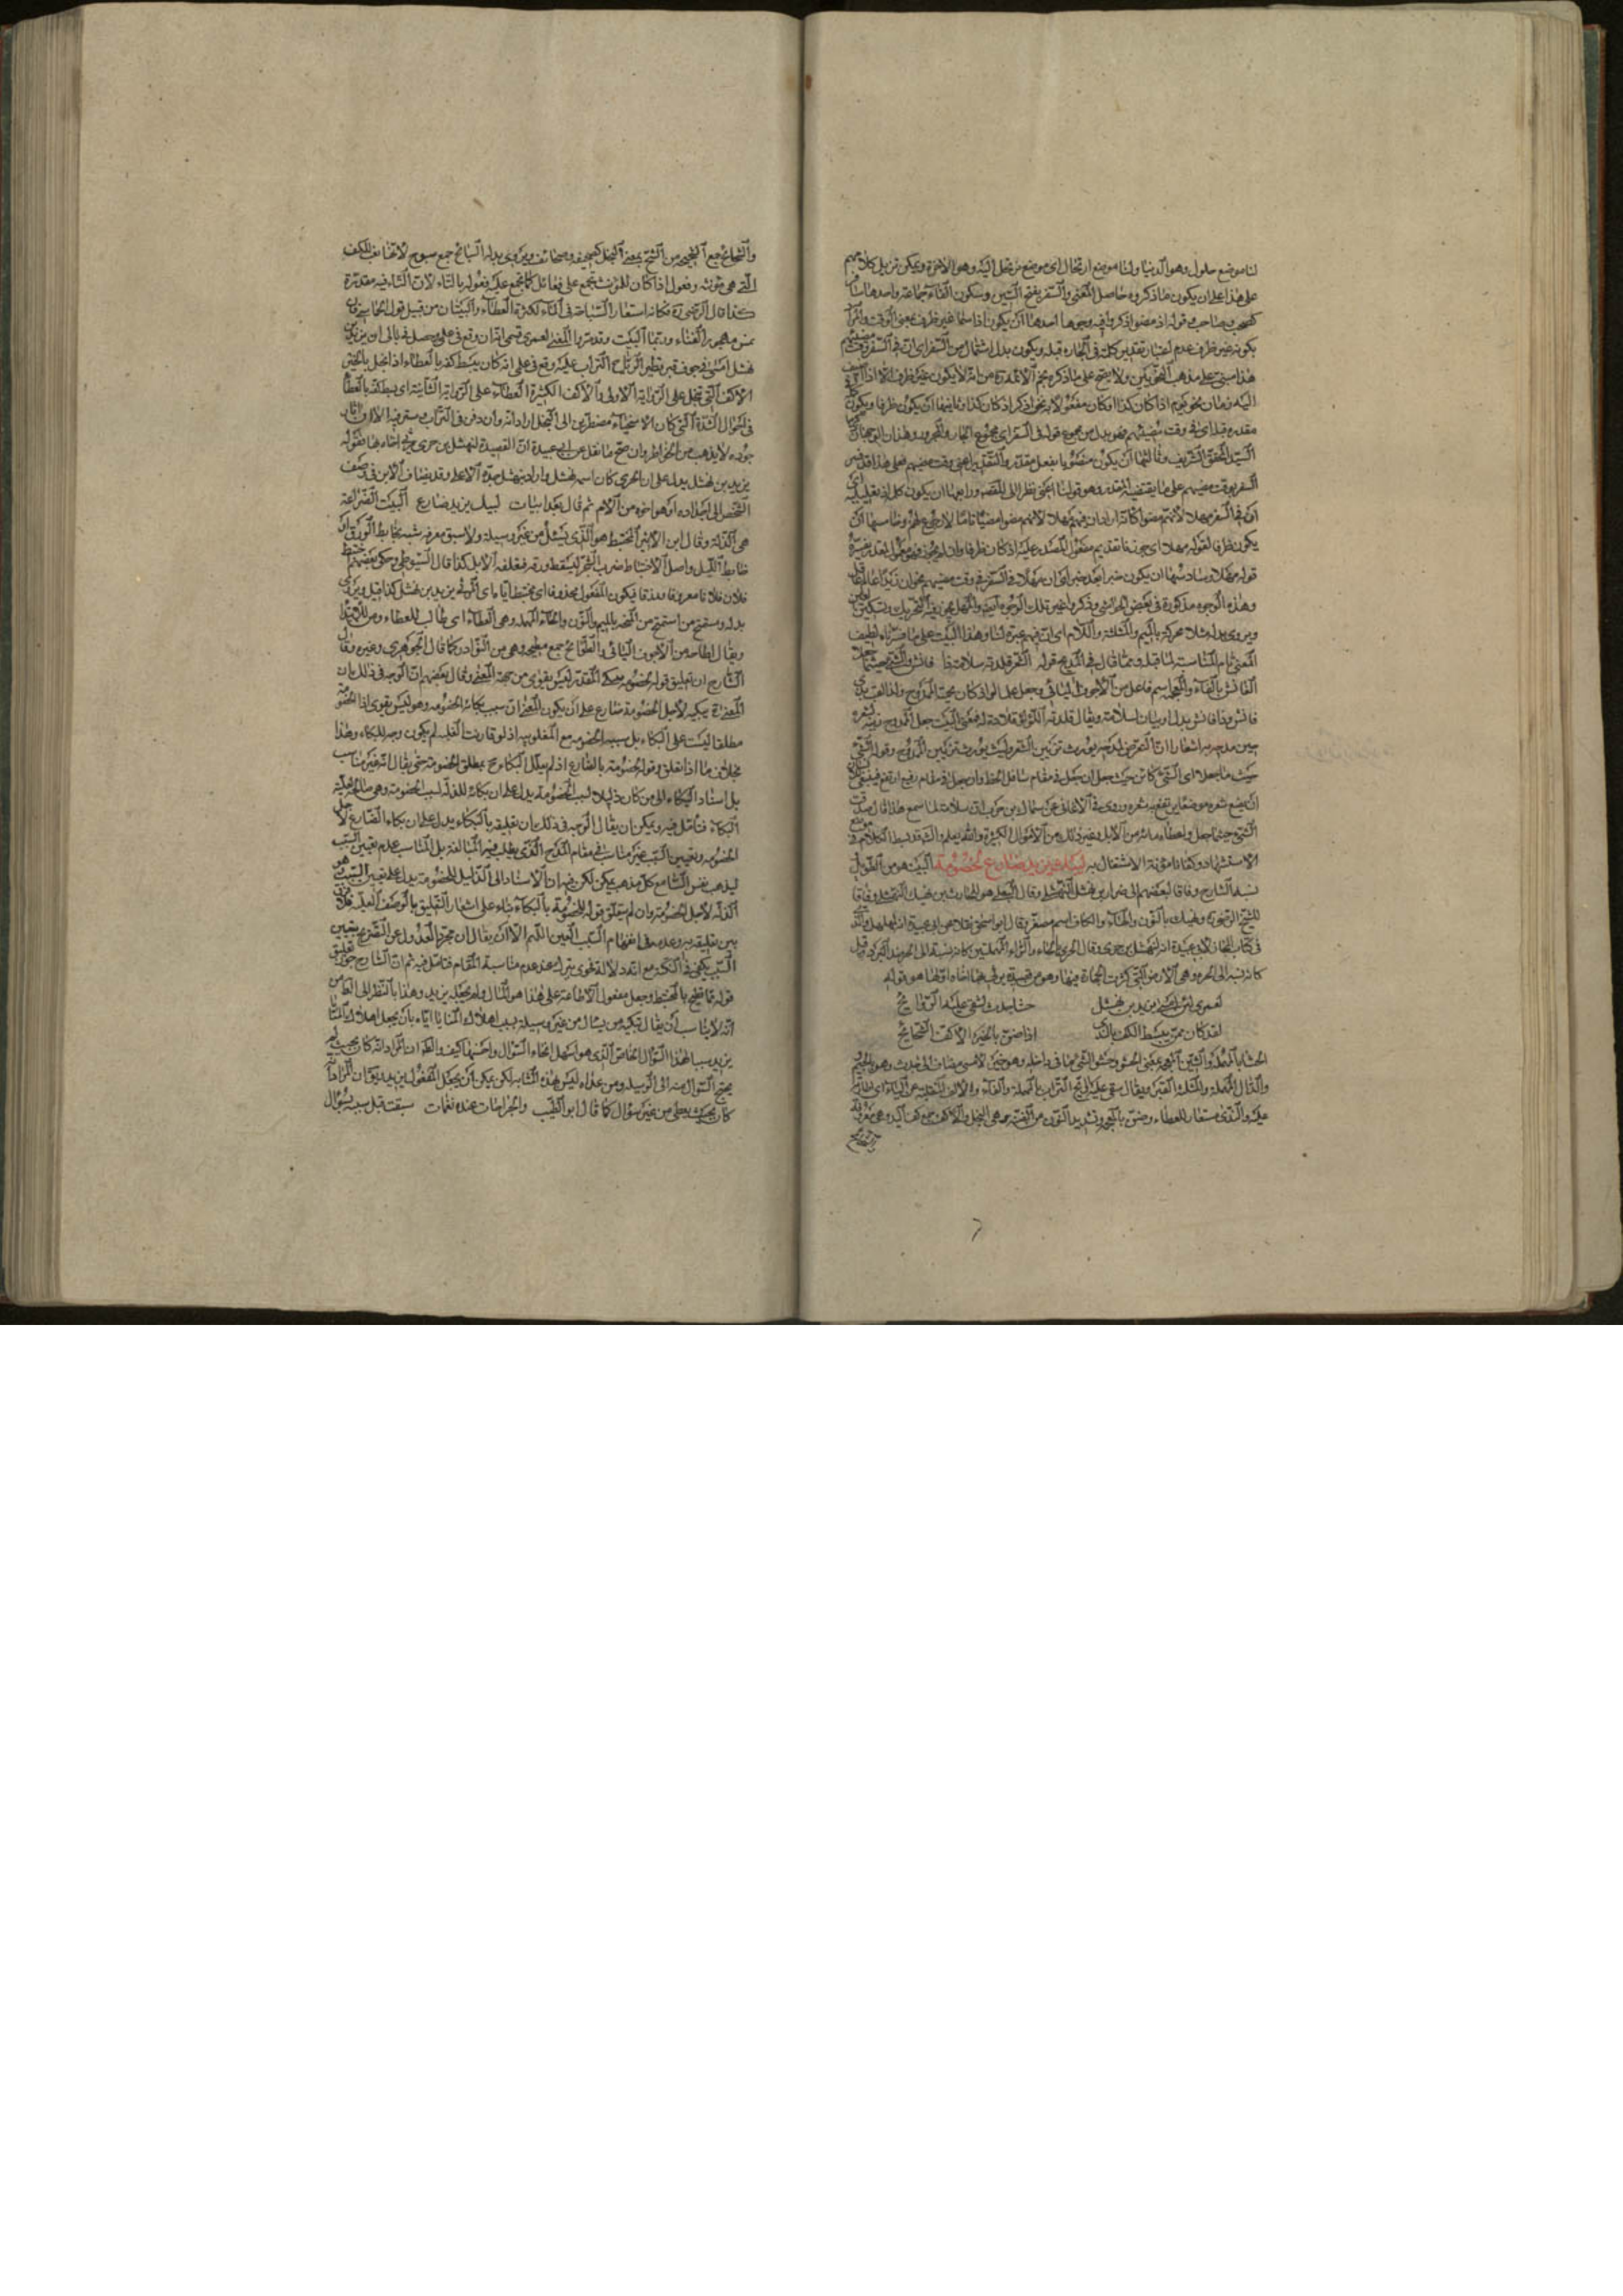 لنا موضع حلول وهو الدنيا ولنا موضع ارتحال اى موضع نرتحل اليه وهو الآخرة ويمكن تنزيل كلامهم
على هذا على ان يكون ما ذكروه حاصل المعنى والسفر بفتح السين وسكون الفاء جماعة واحدها سافر
كصحب وصاحب وقوله اذ مضوا ذكروا فيه وجوها احدها ان يكون اذ اسما غير ظرف بمعنى الوقت والمراد
بكونه غير ظرف عدم اعتبار تقدير كلمة فى الجارة قبله ويكون بدل اشتمال من السفر اى ان فى السفر وقت
هذا مبنى على مذهب النحويين ولا يصح على ما ذكره نجم الائمة من انه لا يكون غير ظرف الا اذا اضيف
اليه زمان نحو يوم اذ كان كذا او كان مفعولا به نحو اذكر اذ كان كذا وثانيها ان يكون ظرفا ويكون
مقدرة قبله اى فى وقت مضيهم فهو بدل من مجموع قوله فى السفر اى مجموع الجار والمجرور وهذان الوجهان
السيد المحقق الشريف وثالثها ان يكون منصوبا بفعل مقدر والتقدير اعنى وقت مضيهم فعلى هذا
السفر بوقت مضيهم على ما يقتضيه المقدر وهو قولنا اعنى نظرا الى القصة ورابعها ان يكون كل اذ تعليلية
ان فى السفر مهلا لانهم مضوا كانه اراد ان فيهم مهلا لانهم مضوا مضيا تاما لا رجوع لهم وخامسها ان
يكون ظرفا لقوله مهلا
قوله مهلا وسادسها ان يكون خبرا بعد خبر اى ان مهلا فى السفر فى وقت مضيهم نحو ان زيدا عالم
وهذه الوجوه مذكورة فى بعض الحواشى
ويروى بدله مثلا محركة بالميم والمثلثة واللام اى ان فيهم عبرة لنا وهذا البيت على ما فسرناه لطيف
المعنى تام المناسبة لما قبله ومما قال فى المدح قوله الشعر قلدته سلامة ذا فائش والشئ حيثما جعلا
الفائش بالفاء والمعجمة اسم فاعل من الاجوف
فائش وذا فائش بدل او بيان لسلامة ويقال قلدته
حين مدحه به
حيث ما جعلا اى الشئ كائن حيث جعل ان جعل فى مقام سافل انحط وان جعل فى مقام رفيع ارتفع فينبغى
ان يضع شعره موضعا يرتفع به شعره وروى فى الاغانى عن سماك بن حرب ان سلامة لما سمع هذا قال صدقت
الشئ حيثما جعل واعطاه مائة من الابل وغير ذلك من الاموال الكثيرة والله يعلم
الاستشهاد وكفانا مؤنة الاشتغال به ليبك يزيد ضارع لخصومة البيت هو من الطويل
نسبه الشارح وفاقا لبعضهم الى ضرار بن نهشل النهشلى وقال البعلى هو للحارث بن نهيك النهشلى وفاقا
للشيخ الزمخشرى ونهيك بالنون والهاء والكاف اسم مصغر وقال ابو اسحق نقلا عن ابى عبيدة انه لمهلهل والذى
فى كتاب المجاز لابى عبيدة انه لنهشل بن حرى وقال الحرى بالحاء والراء المهملتين كانه نسبة الى الحر ضد البرد وقيل
كانه نسبة الى الحرة وهى الارض التى كثرت الحجارة فيها وهو من قصيدة يرثى بها اخاه اولها هو قوله
لعمرى لئن امسى يزيد بن نهشل حشا جدث تسفى عليه الروائح
لقد كان ممن يبسط الكف بالندى اذا ضن بالخير الاكف الشحائح
الحشا بالمهملة والشين المعجمة بمعنى الحشو وحشو الشئ ما فى داخله وهو خبر لامسى مضاف الى جدث وهو بالجيم
والدال المهملة والمثلثة القبر ويقال سفى عليه الريح التراب بالمهملة والفاء
عليه والندى مستعار للعطاء وضن بالمعجمة وتشديد النون من الضنة وهى البخل والاكف جمع كف اليد وهى معروفة
والشحائح
والشحائح جمع الشحيحة من الشح بمعنى البخل كصحيفة وصحائف ويروى بدله السبائح جمع سبوح لانها نعت للكف
التى هى مؤنثة وفعول اذا كان للمؤنث يجمع على فعائل كما يجمع عليه فعولة بالتاء لان التاء فيه مقدرة
كذا قال الرضى ره فكانه استعار السباحة فى الماء لكثرة العطاء والبيتان من قبيل قول الحماسى فان
تمس مهجور الفناء وربما البيت وقد مر بنا المعنى لعمرى قسمى ان وقع فى علمى وحصل فى بالى ان يزيد بن
نهشل امسى فى جوف قبر تطير الرياح التراب عليه وقع فى علمى انه كان يبسط كفه بالعطاء اذا بخل بالخير
الاكف التى تبخل على الرواية الاولى والاكف الكثيرة العطاء على الرواية الثانية اى بسط كفه بالعطاء
فى احوال الشدة التى كان الاسخياء مضطرين الى البخل اراد انه وان دفن فى التراب وستر فيه الا ان آثار
جوده لا يذهب من الخواطر وان صح ما نقل عن ابى عبيدة ان القصيدة لنهشل بن حرى يرثى اخاه بها فقوله
يزيد بن نهشل يدل على ان الحرى كان اسمه نهشل او اراد بنهشل جده الاعلى وقد يضاف الابن فى وصف
الشخص الى اجداده او هو اخوه من الام ثم قال بعد ابيات ليبك يزيد ضارع البيت الضراعة
هى الذلة وقال ابن الاثير المختبط هو الذى يسئل من غير وسيلة ولا سبق معرفة شبه بخابط الورق او
خابط الليل واصل الاختباط ضرب الشجر ليسقط ورقه فيعلفه الابل كذا قال السيوطى وحكى بعضهم اختبط
فلان فلانا معروفا فرفده فيكون المفعول محذوفا اى مختبط اياه اى المرثى يزيد بن نهشل كذا قيل ويروى
بدله ومستمنح من استمنح من المنحة بالميم والنون والحاء المهملة وهى العطاء اى طالب للعطاء ومن للابتداء
ويقال اطاحه من الاجوف اليائى والطوائح جمع مطيحة وهى من النوادر كما قال الجوهرى وغيره وقال
الشارح ان تعليق قوله لخصومة بيبكى المقدر ليس بقوى من جهة المعنى وقال بعضهم ان الوجه فى ذلك ان
المعنى ح يبكيه لاجل الخصومة ضارع على ان يكون المعنى ان سبب بكائه الخصومة وهو ليس بقوى اذ الخصومة
مطلقا ليست على البكاء بل سببه الخصومة مع المغلوبية اذ لو قارنت الغلبة لم يكون وجه للبكاء وهذا
بخلاف ما اذا تعلق قوله لخصومة بالضارع اذ لم يعلل البكاء ح بمطلق الخصومة حتى يقال انه غير مناسب
بل اسناد البكاء الى من كان ذليلا لسبب الخصومة يدل على ان بكائه للذلة لسبب الخصومة وهى صالحة لعلية
البكاء فتأمل فيه ويمكن ان يقال الوجه فى ذلك ان تعليقه بالبكاء يدل على ان بكاء الضارع لاجل
الخصومة وتعيين السبب غير مناسب فى مقام المدح الذى يطلب فيه المبالغة بل المناسب عدم تعيين السبب
ليذهب نفس السامع كل مذهب يمكن لكن فيه ان الاسناد الى الذليل للخصومة يدل على تعيين السبب وهو
الذلة لاجل الخصومة وان لم يتعلق قوله لخصومة بالبكاء بناء على اشعار التعليق بالوصف العلية فلا فرق
بين تعليقه به وعدمه فى افهام السبب المعين اللهم الا ان يقال ان مجرد العدول عن التصريح بتعيين
السبب يكفى فى النكتة
قوله مما تطيح بالمختبط وجعل مفعول الاطاحة على هذا هو المال ولم يجعله يزيد وهذا بالنظر الى
انه لا يناسب ان يقال يبكيه من يسأل من غير وسيلة بسبب اهلاك المنايا اياه بان يجعل اهلاك المنايا
يزيد سببا لهذا السؤال الخاص الذى هو اسهل انحاء السؤال واحسنها كيف والظ ان المراد انه كان بحيث لم
يحتج السؤال منه الى الوسيلة
كان بحيث يعطى من غير سؤال كما قال ابو الطيب والجراحات عنده نغمات سبقت قبل سيبه بسؤال